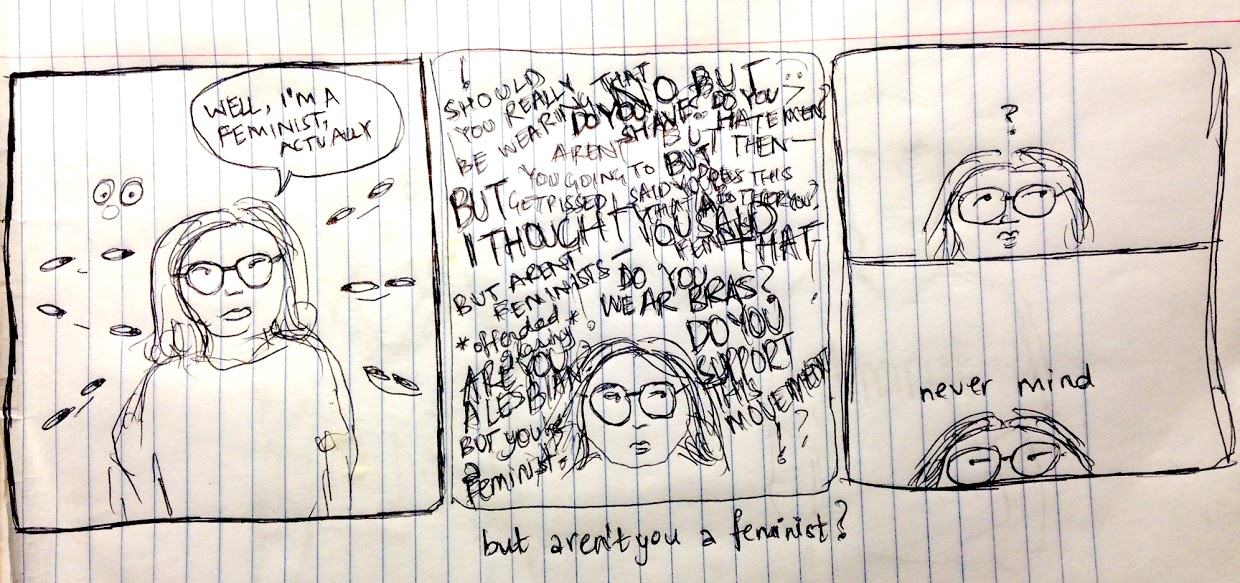 WELL, I'M A
FEMINIST,
ACTUALLY
!
SHOULD
YOU REALLY
BE WEARING THAT
NO BUT
DO YOU
SHAVE?
DO YOU
HATE MEN?
ARENT
YOU GOING TO
GET PISSED
BUT
BUT THEN—
I SAID
DOES THIS
BOTHER YOU?
BUT
I THOUGHT YOU SAID
THAT
BUT ARENT
FEMINISTS—
DO YOU
WEAR BRAS?
*offended*
ARE YOU
A LESBIAN
BUT YOU'RE
a
Feminist-
DO YOU
SUPPORT
THIS
MOVEMENT
!?
?
never mind
but aren't you a feminist?